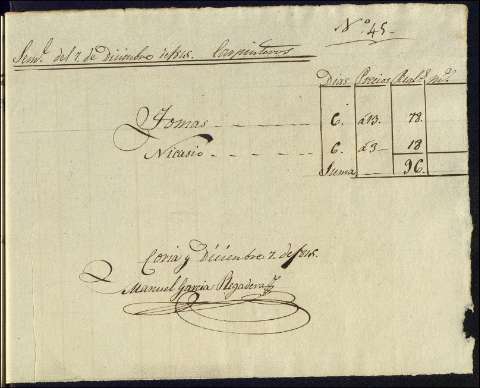 Nº. 45.
Semª. del 7. de Diciembre de 1815. Carpinteros
Dias. Precios Reals. mrs.
Tomas 6. á 13. 78.
Nicasio 6. á 3 18
Suma 96.
Coria y Diciembre 7. de 1815.
Manuel Garcia Regadera